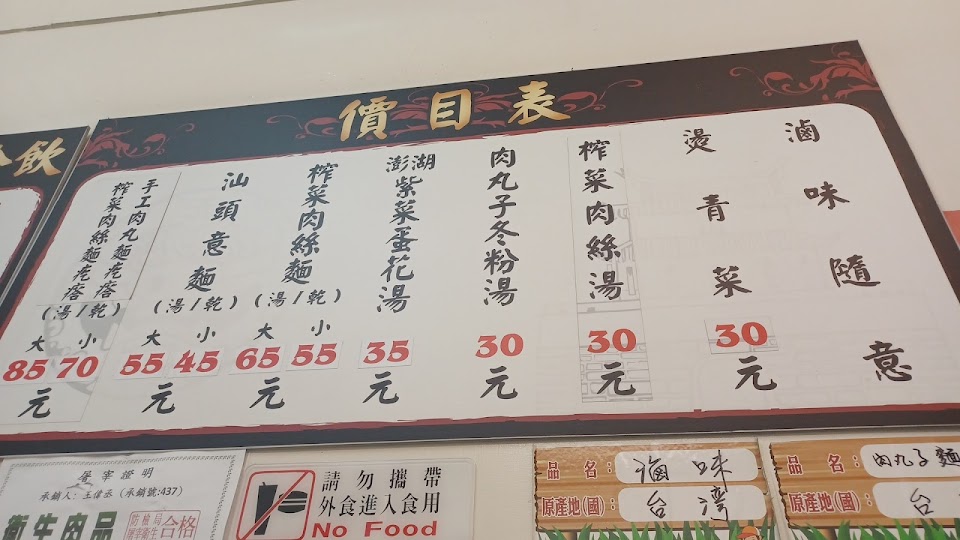 價目表
滷味隨意
燙青菜
30
元
榨菜肉絲湯
30
元
肉丸子冬粉湯
30
元
澎湖
紫菜蛋花湯
35
元
榨菜肉絲麵
(湯/乾)
大 小
65 55
元
汕頭意麵
(湯/乾)
大 小
55 45
元
手工肉丸麵疙瘩
榨菜肉絲麵疙瘩
(湯/乾)
大 小
85 70
元
飲
屠宰證明
承銷人:王信丞(承銷號:437)
衛生肉品
防檢局
合格
請勿攜帶
外食進入食用
No Food
品 名:滷味
原產地(國):台灣
品 名:肉丸子麵
原產地(國):台